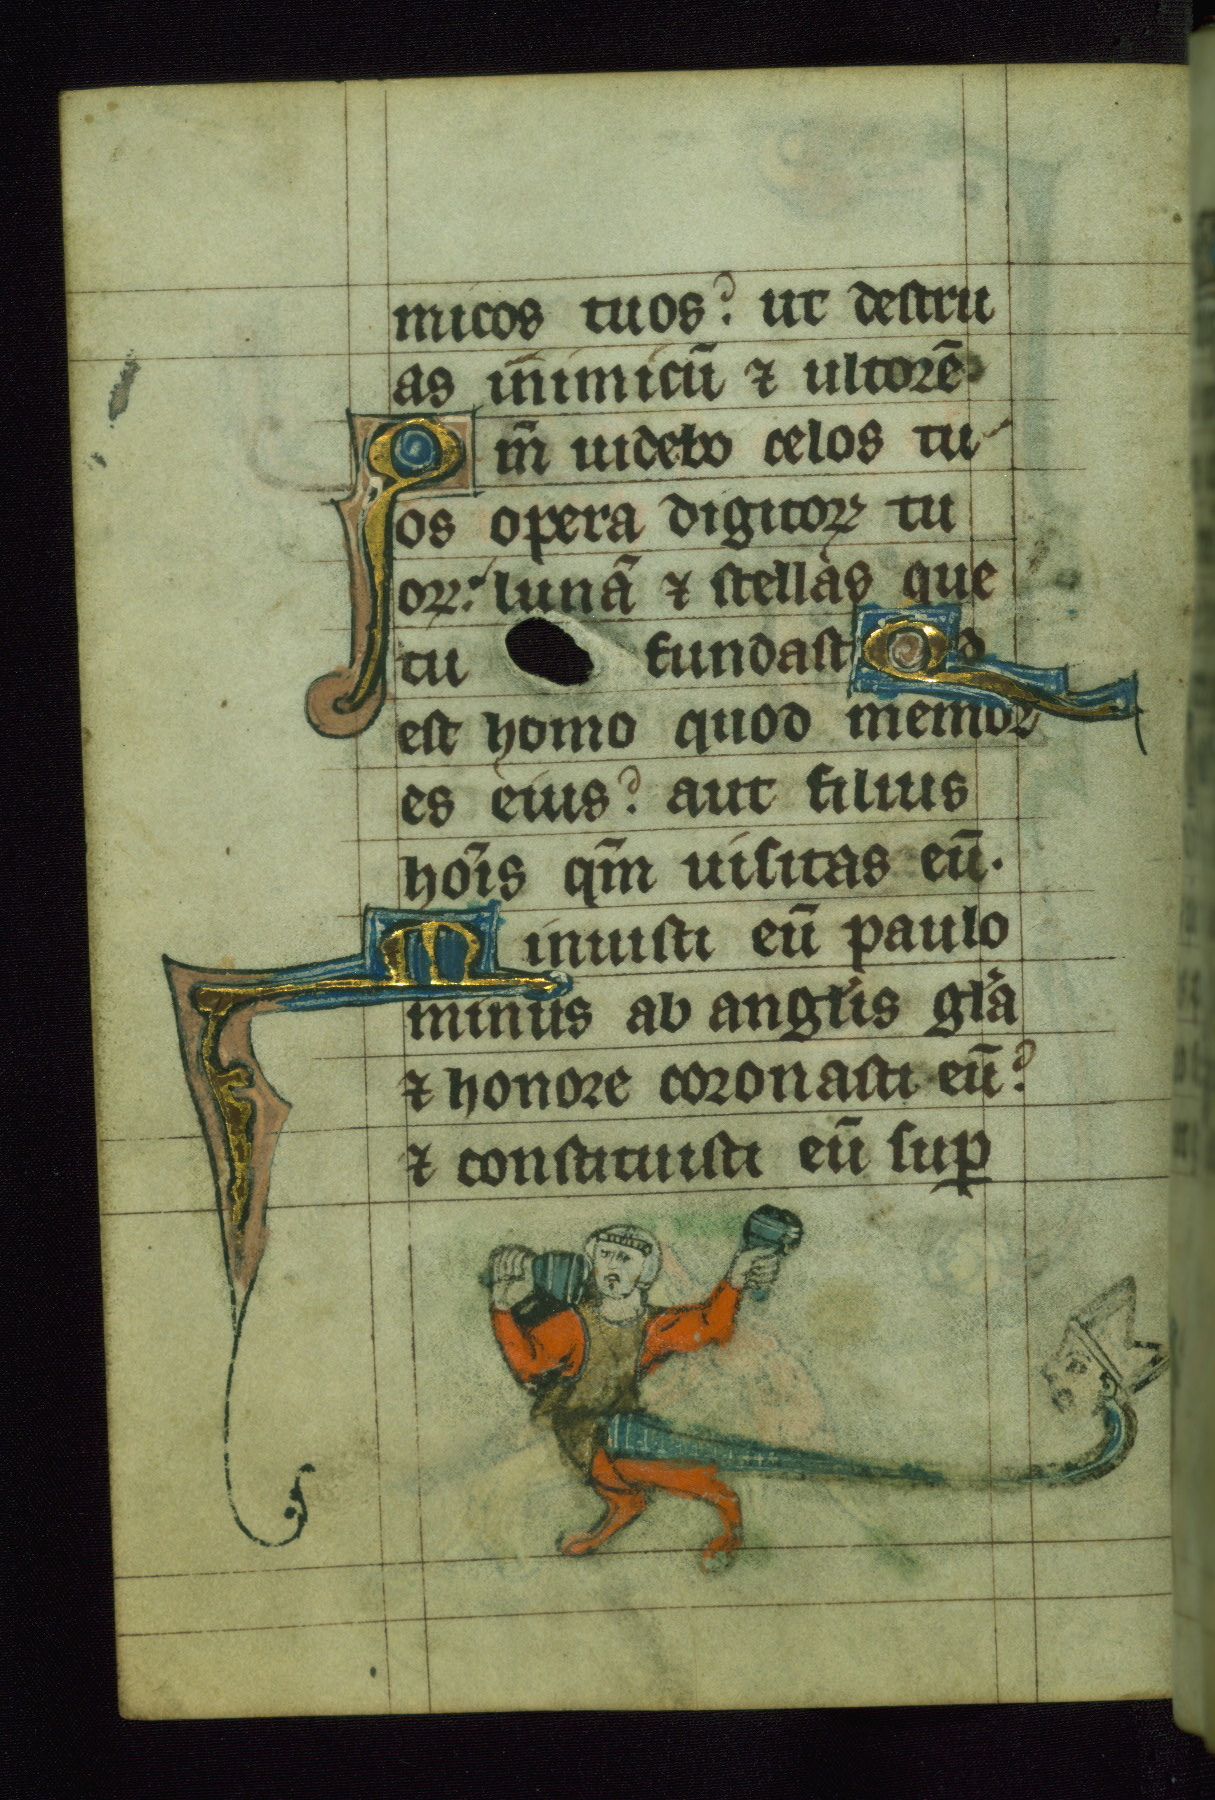 micos tuos? ut destru
as inimicū ⁊ ultorē
Qm̄ uidebo celos tu
os opera digitoꝝ tu
oꝝ: lunā ⁊ stellas que
tu fundasti Quid
est homo quod memor
es eius? aut filius
hoīs qm̄ uisitas eū.
Minuisti eū paulo
minus ab angl'is gl'a
⁊ honore coronasti eū?
⁊ constituisti eū suꝑ